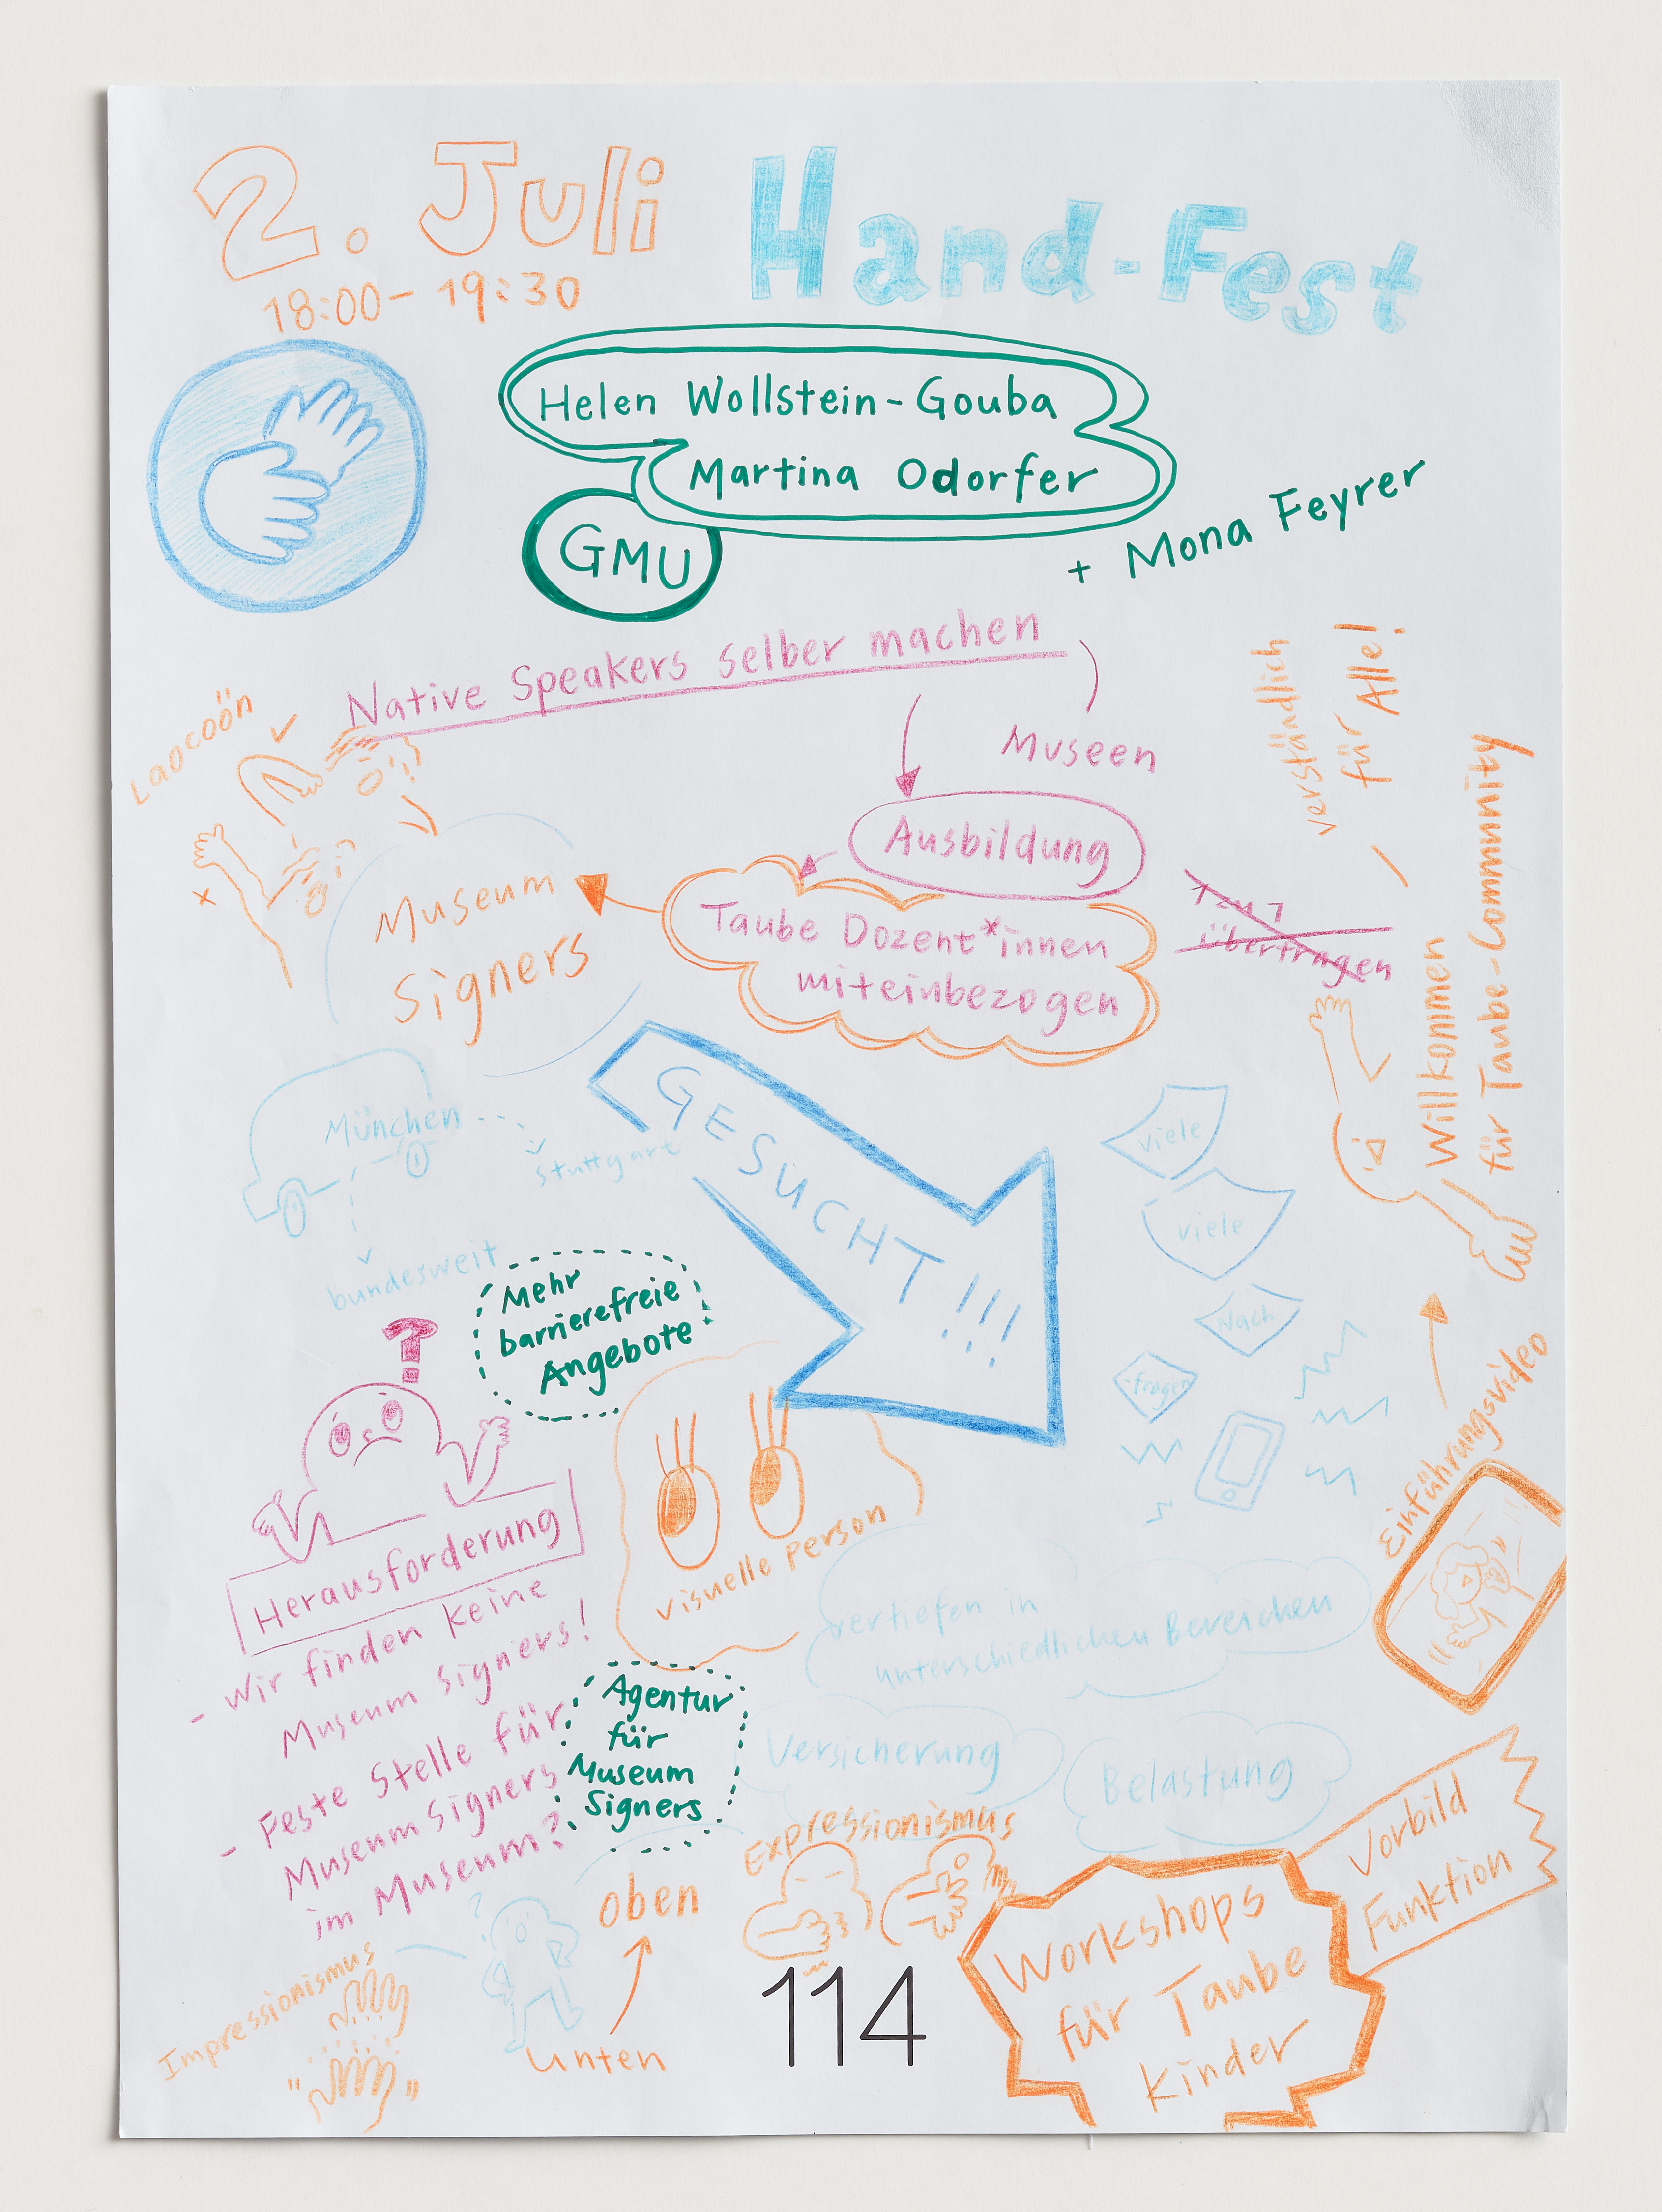 2. Juli
18:00 – 19:30
Hand-Fest
Helen Wollstein-Gouba
Martina Odorfer
GMU
+ Mona Feyrer
Native Speakers selber machen
Museen
Ausbildung
Taube Dozent*innen
miteinbezogen
1 zu 1
übertragen
verständlich
für Alle!
Willkommen
für Taube-Community
Laocoön
Museum
Signers
München
Stuttgart
bundesweit
GESUCHT!!!
viele
viele
Nach
fragen
Mehr
barrierefreie
Angebote
?
Herausforderung
- Wir finden keine
Museum Signers!
- Feste Stelle für
Museum Signers
im Museum?
visuelle Person
Einführungsvideo
vertiefen in
unterschiedlichen Bereichen
Agentur
für
Museum
Signers
Versicherung
Belastung
Expressionismus
Impressionismus
?
oben
unten
Vorbild
Funktion
Workshops
für Taube
Kinder
114